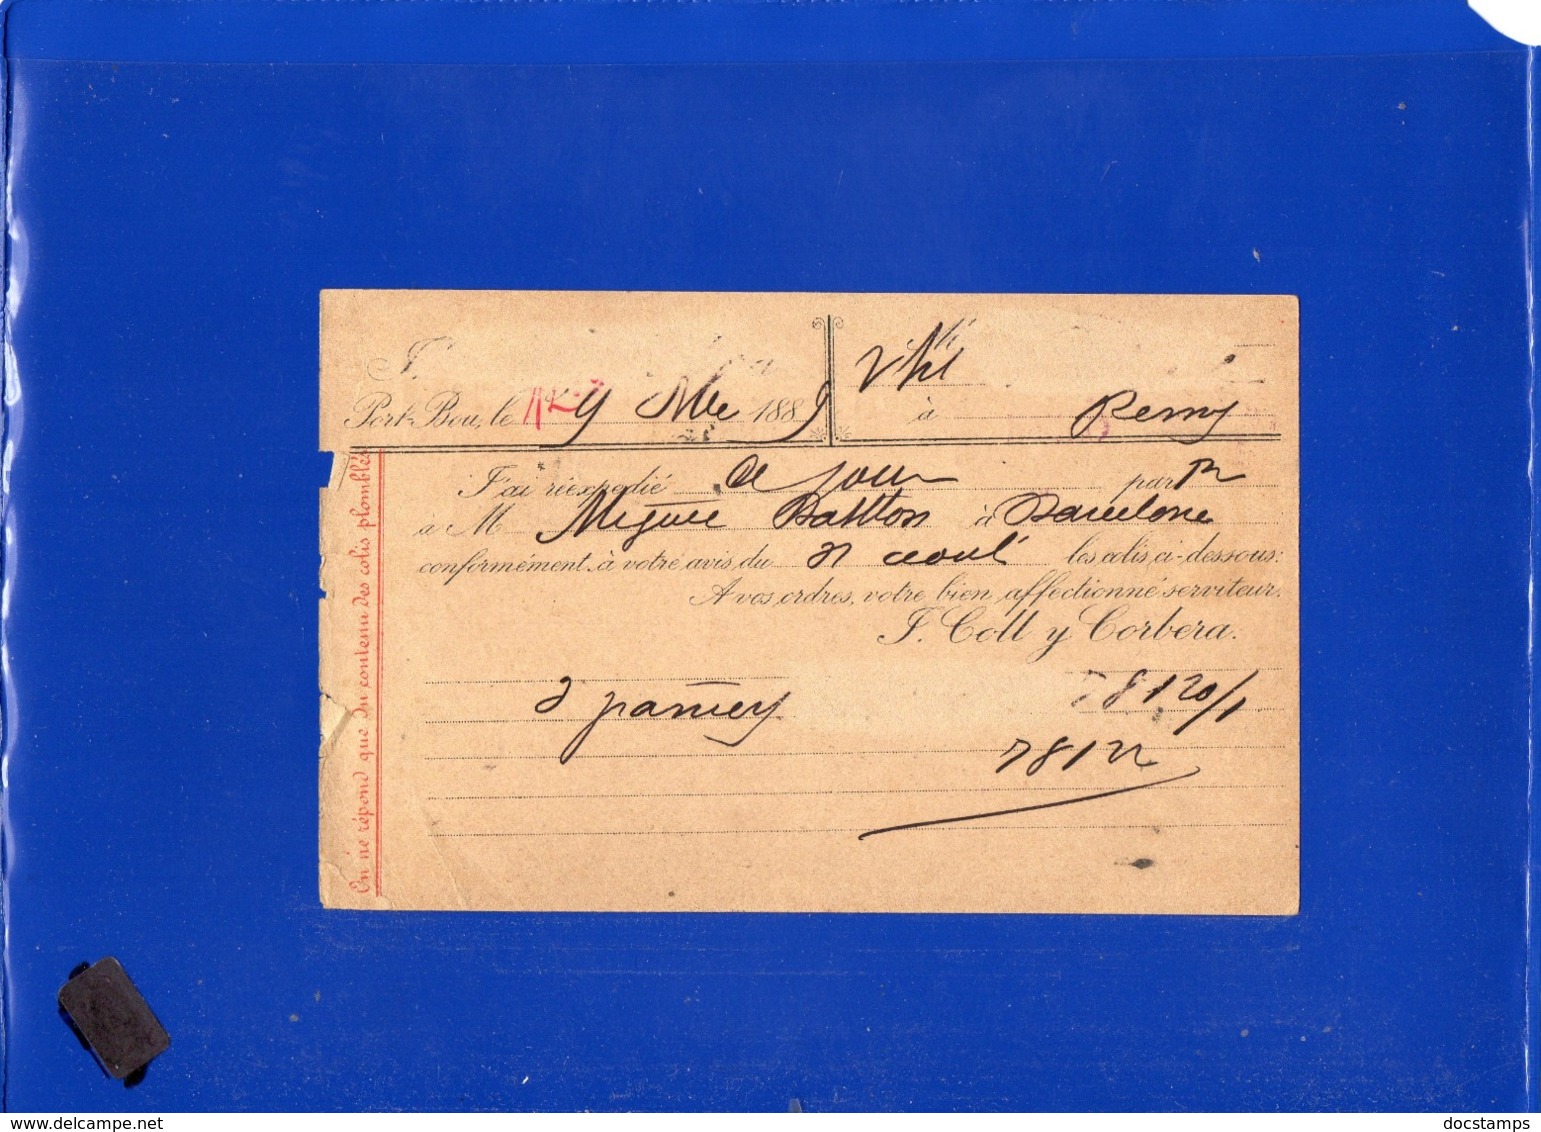 Port-Bou, le 9 188
à Remy
J'ai réexpédié ce jour par
à M Miguel à Barcelone
conformément à votre avis du les colis ci-dessous:
A vos ordres, votre bien affectionné serviteur.
J. Coll y Corbera.
2 paniers 78120/1
78122
On ne répond que du contenu des colis plombés
www.delcampe.net
docstamps